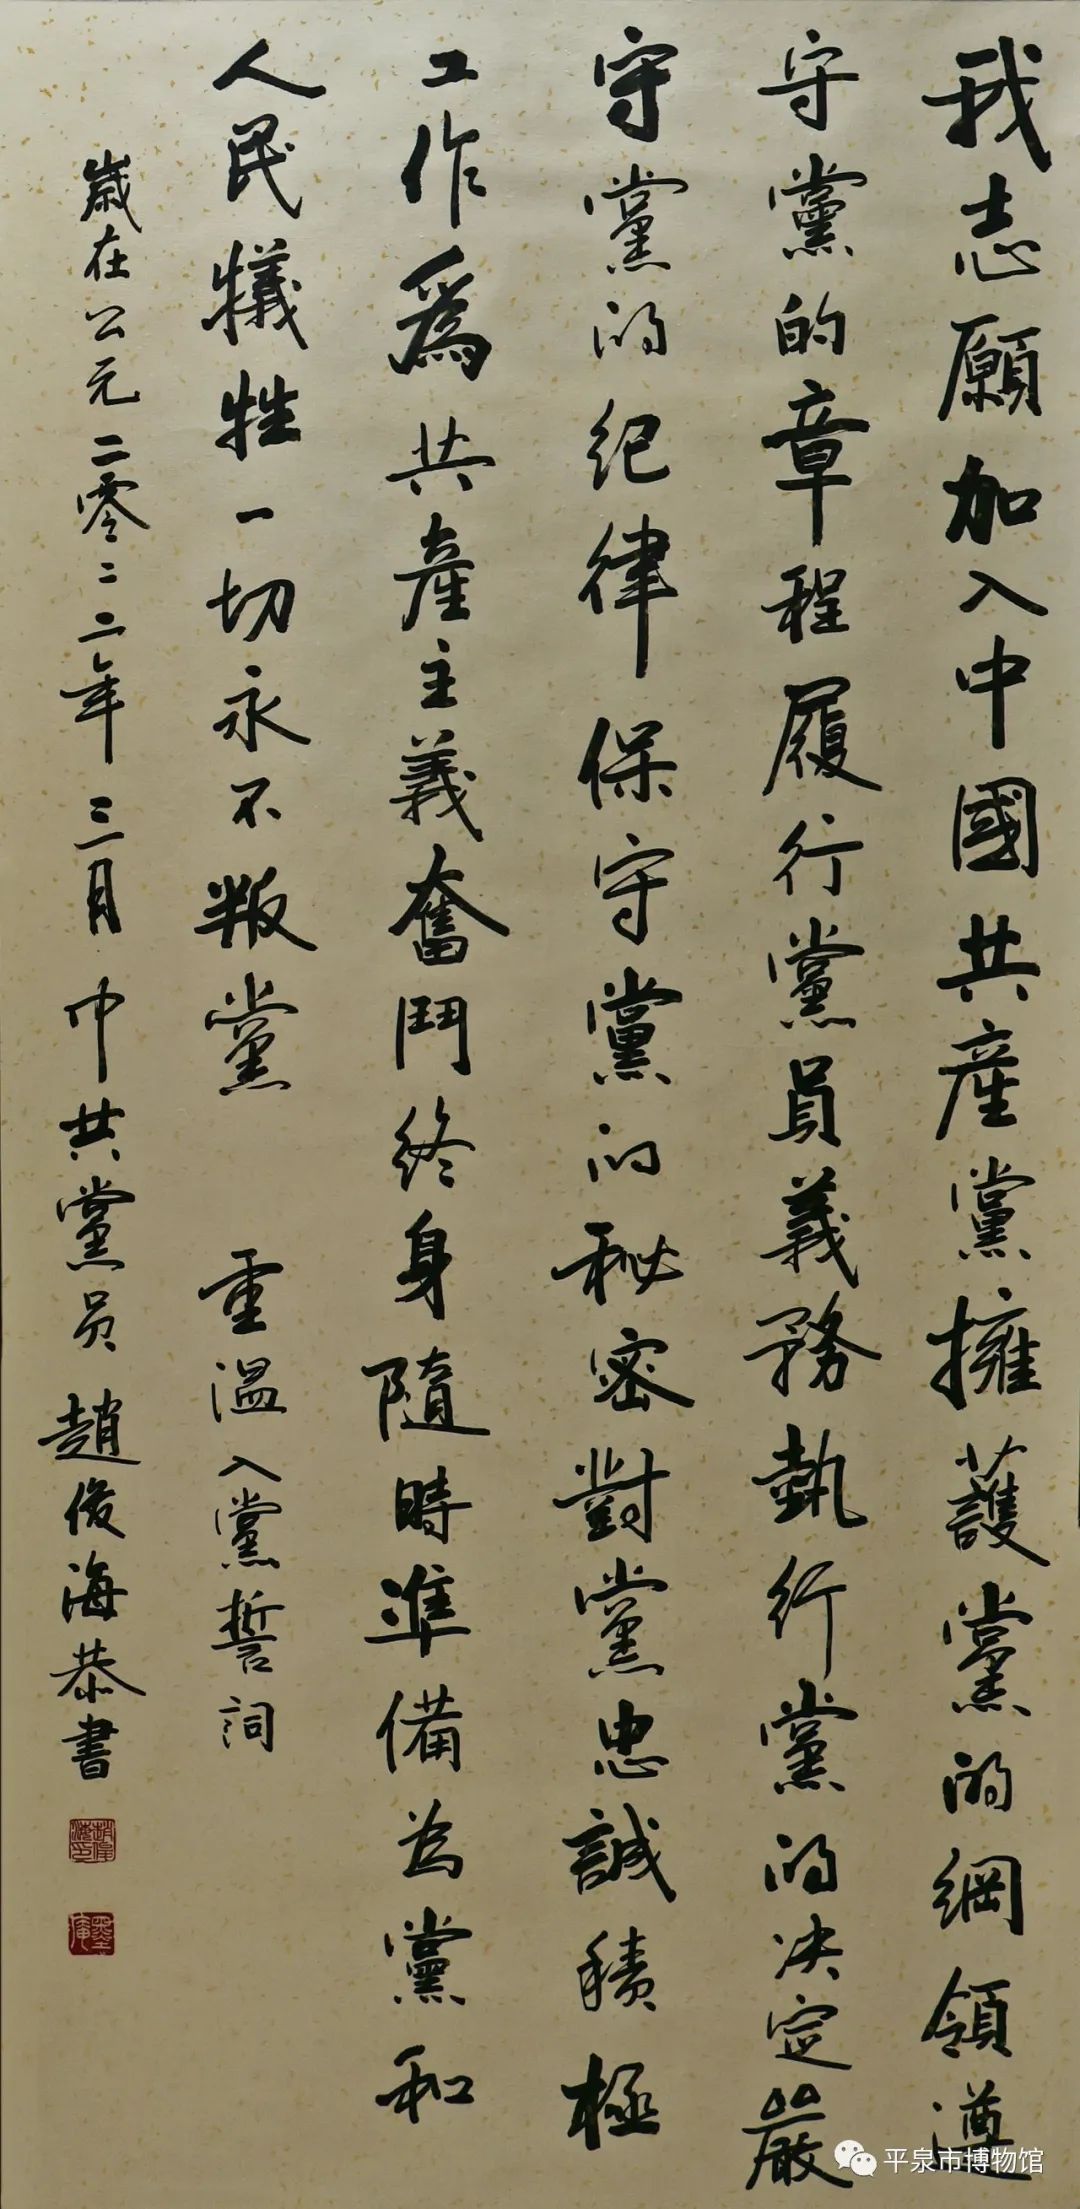 我志願加入中國共産黨擁護黨的綱領遵
守黨的章程履行黨員義務執行黨的决定嚴
守黨的纪律保守黨的秘密對黨忠誠積極
工作爲共産主義奮鬥终身隨時準備为黨和
人民犧牲一切永不叛黨 重温入黨誓詞
歲在公元二零二二年三月中共黨员趙俊海恭書
趙俊海印
墨庵
平泉市博物馆